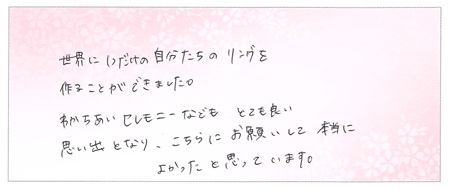 世界に1つだけの自分たちのリングを
作ることができました。
わかちあいセレモニーなども とても良い
思い出となり、こちらにお願いして本当に
よかったと思っています。